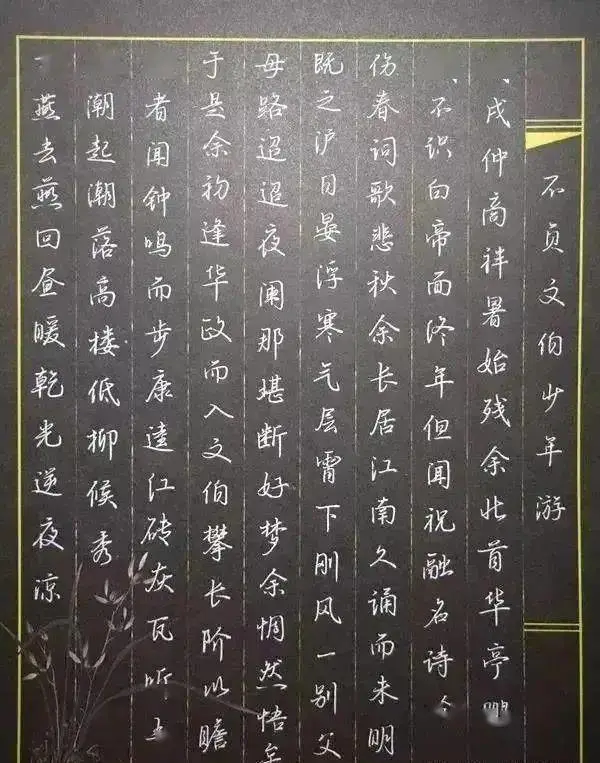 不贞文伯少年游
戌仲商祥暑始残余北首华亭
不识白帝而终年但闻祝融名诗
伤春词歌悲秋余长居江南久诵而未明
既之沪日晏浮寒气层霄下刚风一别父
母路迢迢夜阑那堪断好梦余惆然悟矣
于是余初逢华政而入文伯攀长阶以瞻
者闻钟鸣而步康逵江砖灰瓦听
潮起潮落高楼低柳候秀
燕去燕回昼暖乾光逆夜凉